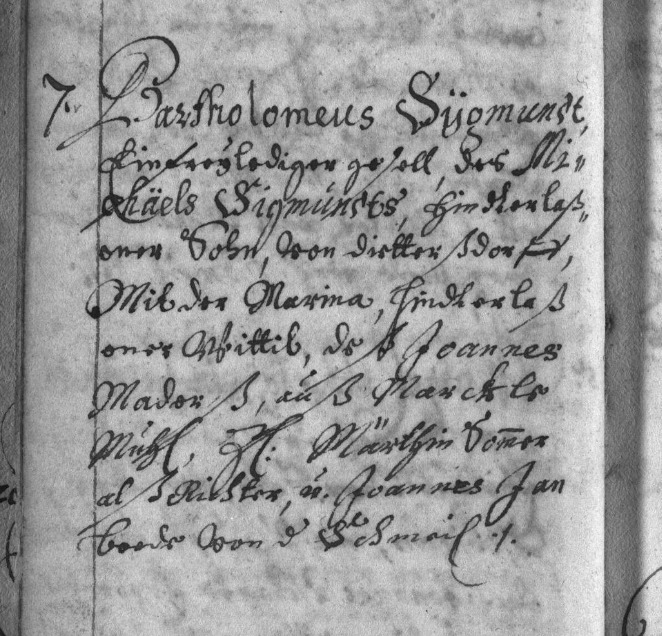 7. Bartholomeus Sÿgmundt,
Ein freÿlediger gesell, des Mi-
chäels Sigmundts, hindterlaß-
ener Sohn, von dietterßdorff,
Mit der Marina, hindterlaß
ener Wittib, deß Joannes
Maderß, auß Marckls
Mühl, Zl: Märthin Som̄er
alß Richter, u. Joannes Jan
von d Schmoil ./.